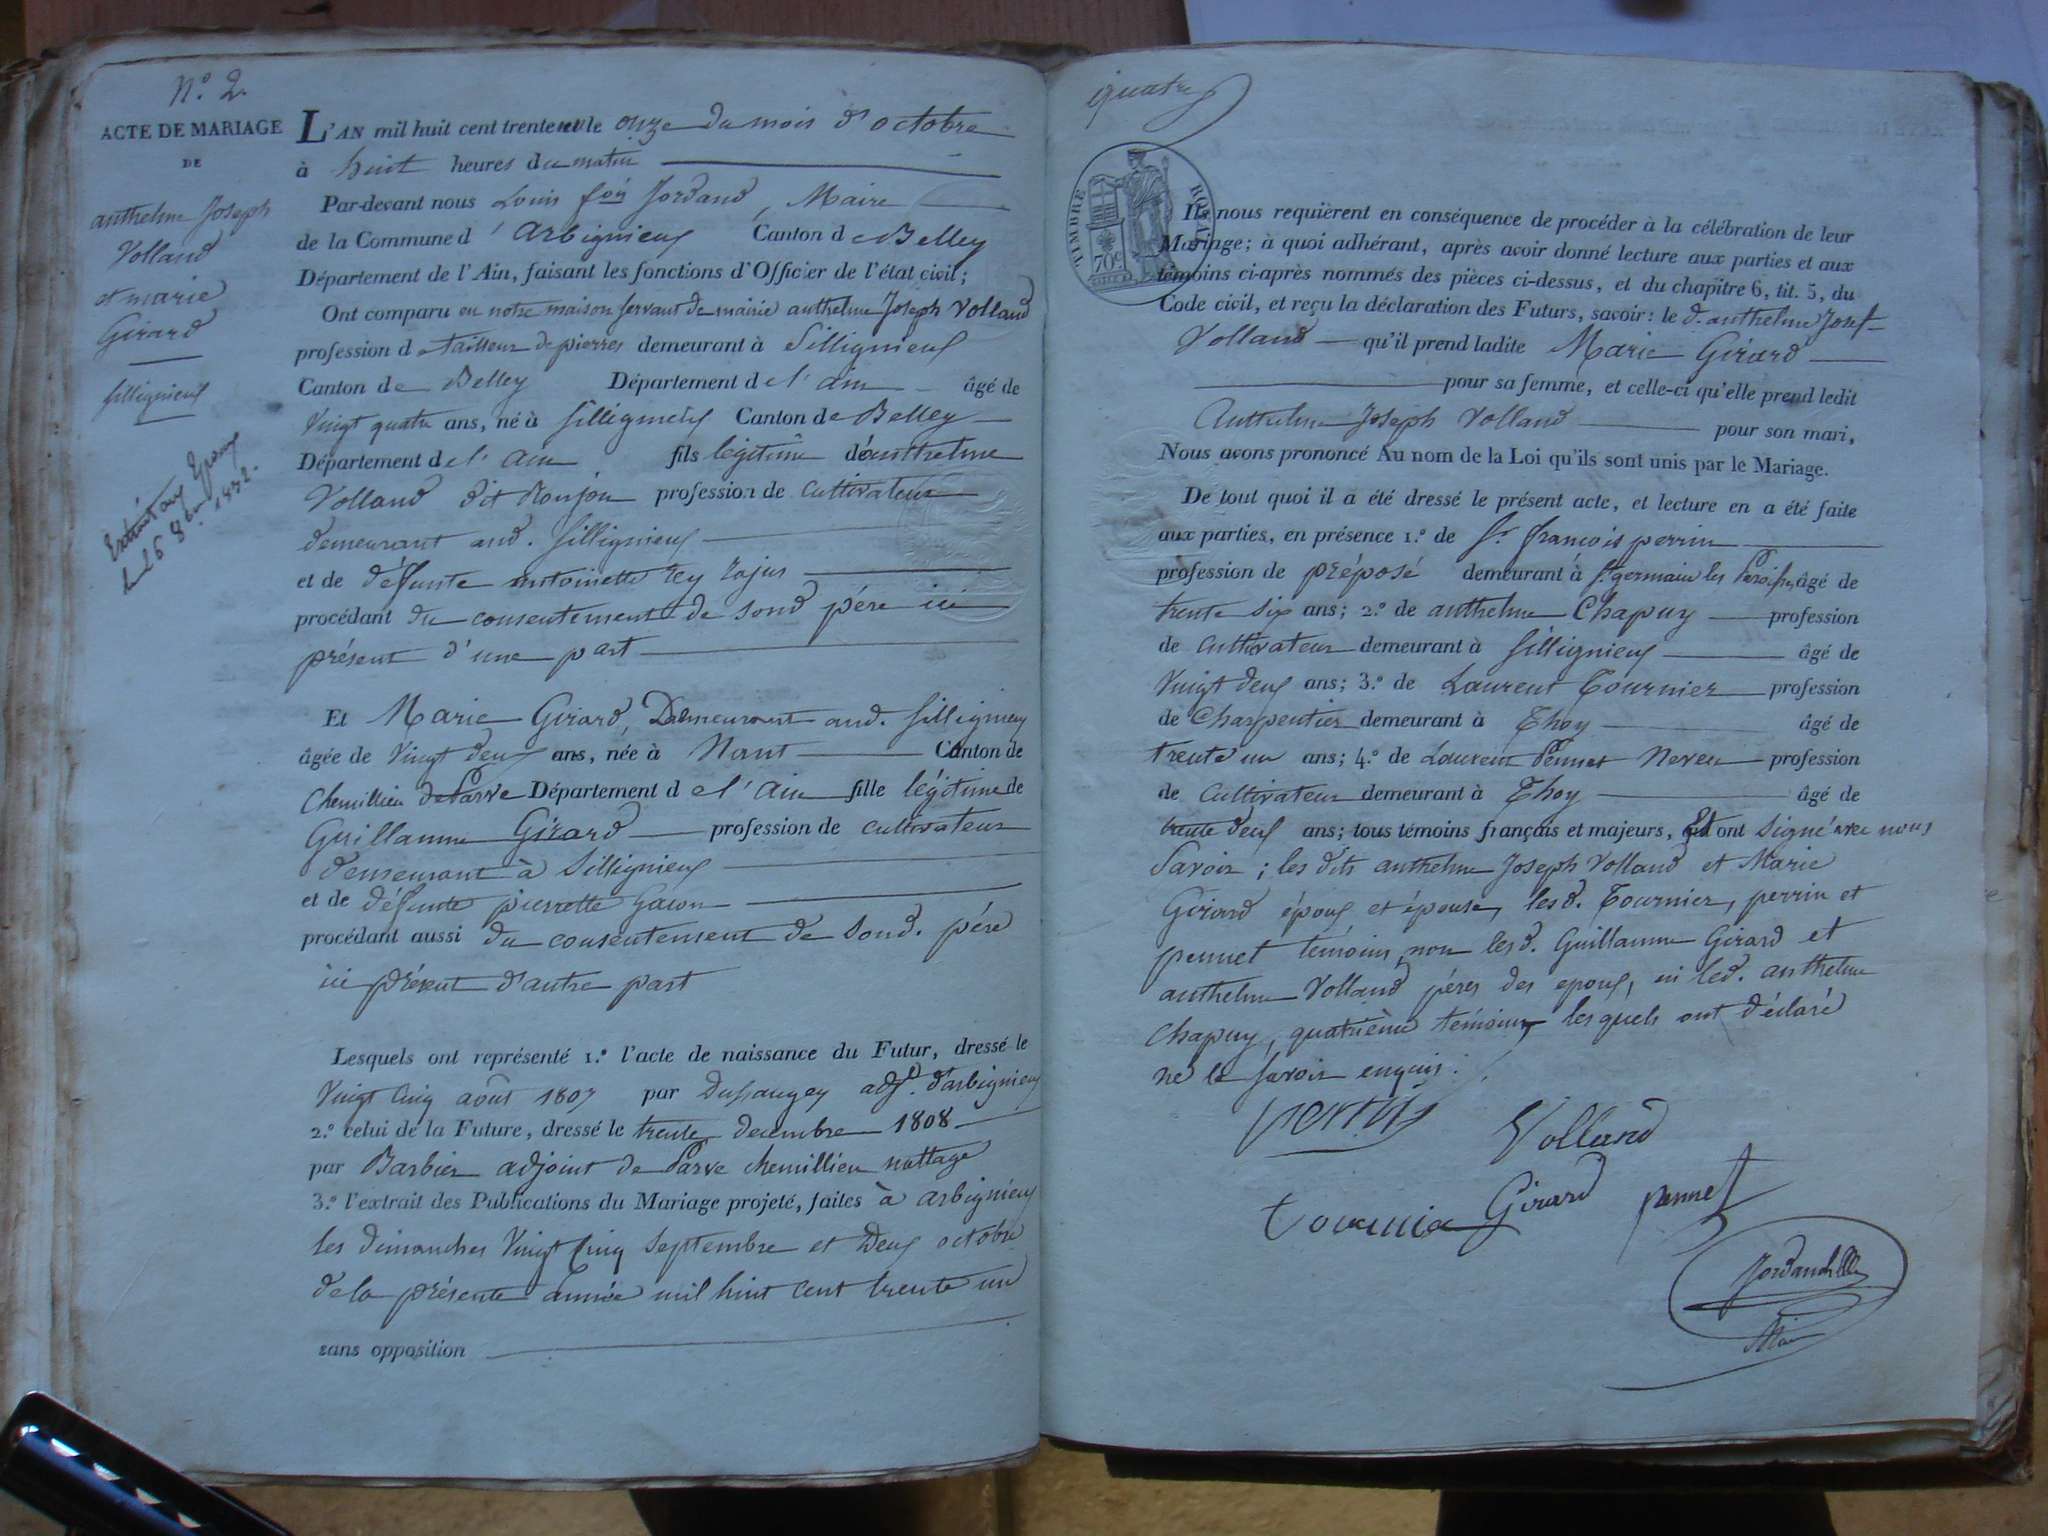 N.º 2.
ACTE DE MARIAGE
DE
anthelme Joseph
Volland
et marie
Girard
Sillignieux
Extrait aux Epoux
le 26 8bre 1832.
L'AN mil huit cent trente un le onze du mois d'octobre
à huit heures du matin
Par-devant nous Louis fois Jordand, Maire
de la Commune d'Arbignieux Canton de Belley
Département de l'Ain, faisant les fonctions d'Officier de l'état civil;
Ont comparu en notre maison servant de mairie anthelme Joseph Volland
profession de tailleur de pierres demeurant à Sillignieux
Canton de Belley Département de l'ain âgé de
Vingt quatre ans, né à Sillignieux Canton de Belley
Département de l'Ain fils légitime d'anthelme
Volland dit Roujou profession de cultivateur
demeurant aud. Sillignieux
et de défunte antoinette rey rajus
procédant du consentement de sond père ici
présent d'une part
Et Marie Girard, Demeurant aud. Sillignieux
âgée de Vingt deux ans, née à Nant Canton de
Chemillieu de Parve Département de l'Ain fille légitime de
Guillaume Girard profession de cultivateur
demeurant à Sillignieux
et de défunte pierrette Gacon
procédant aussi du consentement de sond. père
ici présent d'autre part
Lesquels ont représenté 1.º l'acte de naissance du Futur, dressé le
Vingt Cinq août 1807 par adjt. d'arbignieux
2.º celui de la Future, dressé le trente decembre 1808
par Barbier adjoint de Parve chemillieu nattage
3.º l'extrait des Publications du Mariage projeté, faites à arbignieux
les dimanches Vingt Cinq Septembre et Deux octobre
de la présente année mil huit cent trente un
sans opposition
quatre
TIMBRE ROYAL
70c
Ils nous requièrent en conséquence de procéder à la célébration de leur
Mariage; à quoi adhérant, après avoir donné lecture aux parties et aux
témoins ci-après nommés des pièces ci-dessus, et du chapitre 6, tit. 5, du
Code civil, et reçu la déclaration des Futurs, savoir: le d. anthelme Josef
Volland qu'il prend ladite Marie Girard
pour sa femme, et celle-ci qu'elle prend ledit
Anthelme Joseph Volland pour son mari,
Nous avons prononcé Au nom de la Loi qu'ils sont unis par le Mariage.
De tout quoi il a été dressé le présent acte, et lecture en a été faite
aux parties, en présence 1.º de Sr. françois perrin
profession de préposé demeurant à St germain les Paroisses âgé de
trente six ans; 2.º de anthelme Chapuy profession
de cultivateur demeurant à Sillignieux âgé de
Vingt deux ans; 3.º de Laurent Tournier profession
de Charpentier demeurant à Thoy âgé de
trente un ans; 4.º de Laurent Pennet Neveu profession
de Cultivateur demeurant à Thoy âgé de
trente deux ans; tous témoins français et majeurs, Et ont signé avec nous
Savoir; les dits anthelme Joseph Volland et Marie
Girard époux et épouse, lesd. Tournier, perrin et
pennet témoins, non lesd. Guillaume Girard et
anthelme Volland pères des epoux, ni led. anthelme
Chapuy, quatrième témoin, lesquels ont déclaré
ne le savoir enquis.
perrin Volland
tournier Girard pennet
Jordand
Maire